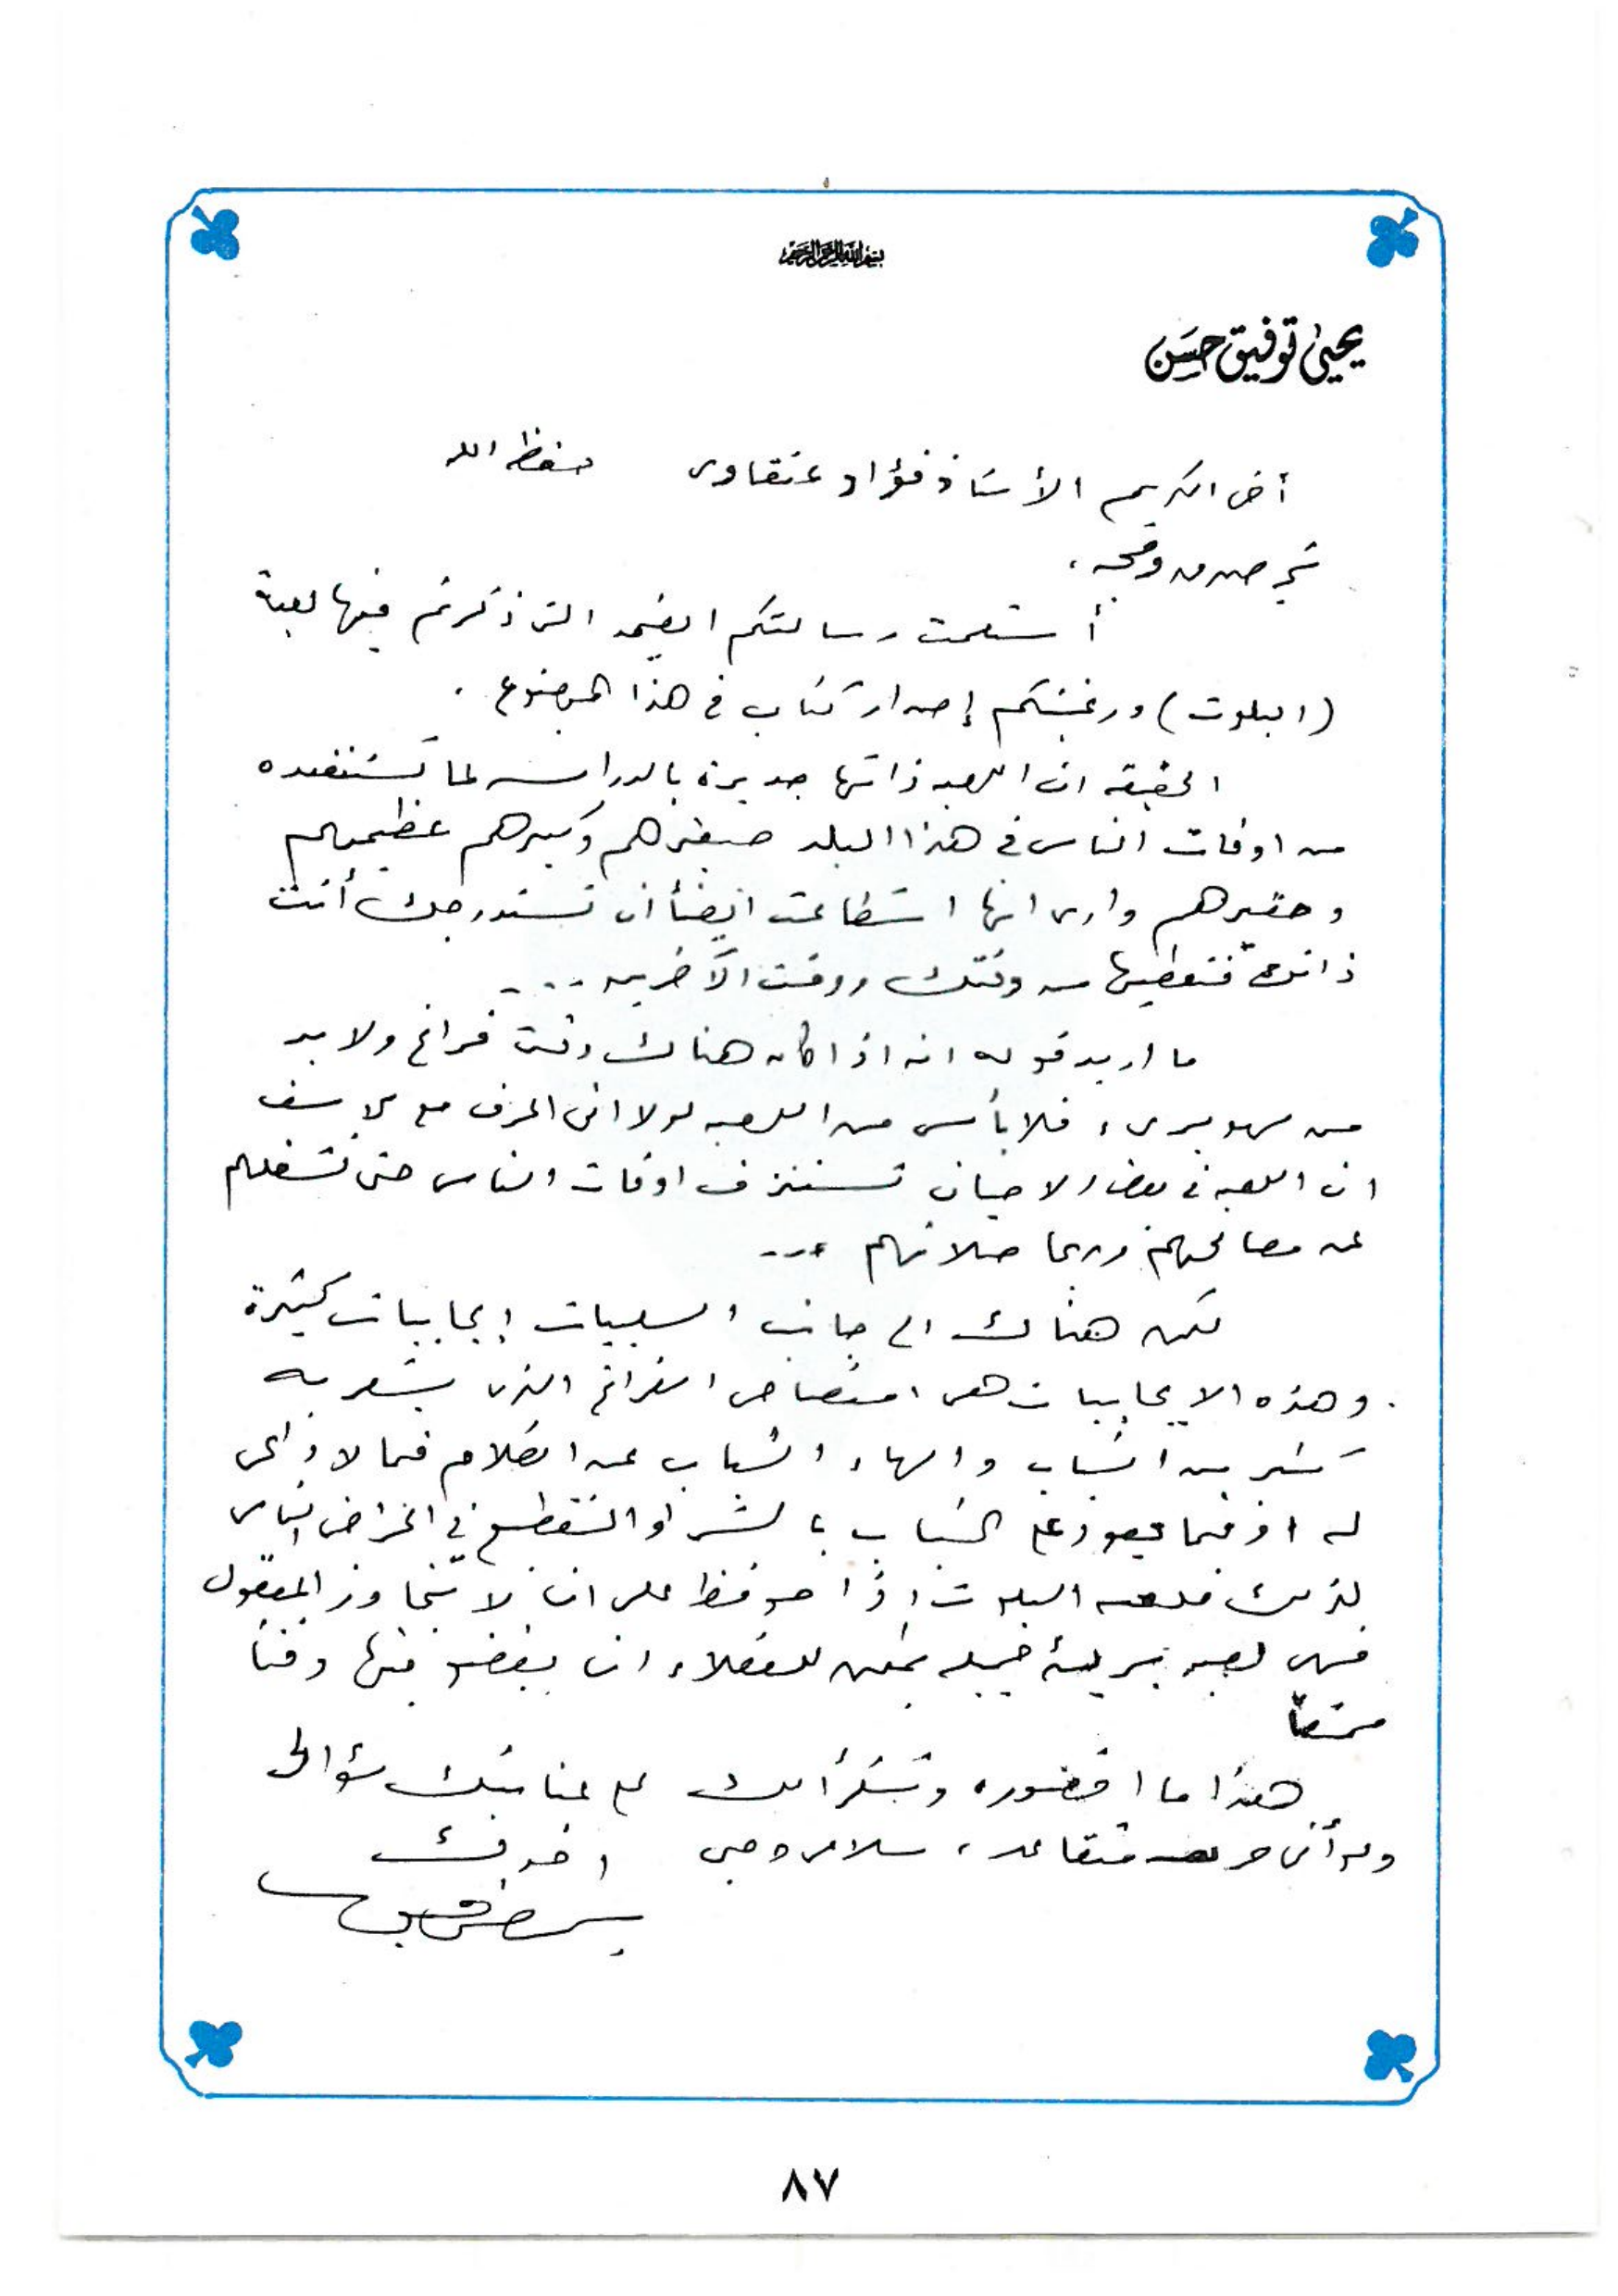 بسم الله الرحمن الرحيم
يحيى توفيق حسن
أخي الكريم الأستاذ فؤاد عنقاوي حفظه الله
تحية ومحبة،
أستلمت رسالتكم القيمة التي ذكرتم فيها لعبة
(البلوت) ورغبتكم إصدار كتاب في هذا الموضوع .
الحقيقه ان اللعبه ذاتها جديرة بالدراسه لما تستنفده
من اوقات الناس في هذا البلد صغيرهم وكبيرهم عظيمهم
وحقيرهم وارى انها استطاعت ايضاً ان تستدرجك أنت
ذاتك فتعطيها من وقتك ووقت الآخرين ...
ما اريد قوله انه اذا كان هناك وقت فراغ ولا بد
من لهو بريء فلا بأس من اللعبه لولا اني اعرف مع الاسف
ان اللعبه في بعض الاحيان تستنزف اوقات الناس حتى تشغلهم
عن مصالحهم وربما صلاتهم ...
لكن هناك الى جانب السلبيات إيجابيات كثيرة
وهذه الايجابيات هي امتصاص الفراغ الذي يشعر به
كثير من الشباب والهاء الشباب عن الكلام فيما لا داعي
له او فيما يعود على الشباب بالشر او التقطيع في اعراض الناس
لذلك فلعبه البلوت إذا حوفظ على ان لا تتجاوز المعقول
فهي لعبه بريئة جميله يمكن للعقلاء ان يقضوا فيها وقتاً
ممتعاً
هذا ما اتصوره وشكراً لك على عنايتك بسؤالي
ولو أني متقاعد، سلامي وحبي اخوك
٨٧